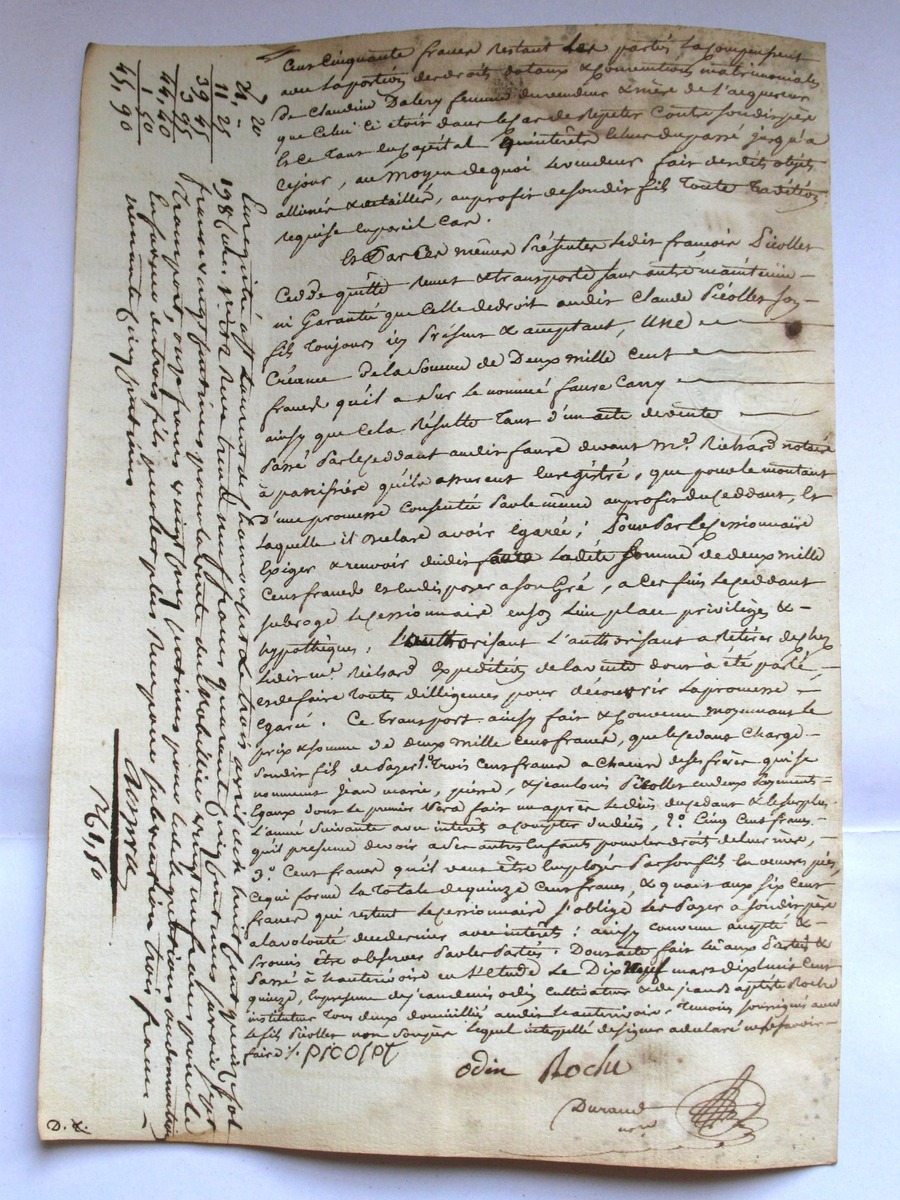 Cent Cinquante francs restant les parties la compensent
avec la portion des droits dotaux & conventions matrimoniales
de Claudine Dalery femme du vendeur & mère de l'acquereur
que Celui ci étoit dans le cas de Repeter contre sondit père
Et ce Tant en Capital qu'intérêts échus du passé jusqu'à
ce jour, au moyen de quoi le vendeur fait desdits objets
alliénés & detaillés, au profit de sondit fils Toute Tradition
requise en pareil Cas.
Et Par Ces mêmes Présentes ledit françois Picollet
Cedde quitte remet & transporte sans autre maintenüe
ni Garantie que Celle de droit audit Claude Picollet son
fils Toujours ici Présent & acceptant, une
Créance de la Somme de Deux mille Cent
francs qu'il a sur le nommé faure Carry
ainsy que Cela Résulte Tant d'un acte de vente
Passé Par le Ceddant audit faure devant Me. Richard notaire
à qu'ils assurent Enregistré, que pour le montant
D'une promesse Consentie Par le même au profit du Ceddant, Et
Laquelle il déclare avoir Egarée; Pour Par le Cessionnaire
Exiger & recevoir dudit faure La dite Somme de deux mille
Cent francs et en disposer à son Gré, a Ces fins le Ceddant
subroge le Cessionnaire en son lieu place privilèges &
hypothèques; L'authorisant L'authorisant a Retirer de chez
Ledit me. Richard Expedition de la vente dont à été parlé
et de faire Toutes dilligences pour découvrir La promesse
Egarée. Ce Transport ainsy fait & Convenu moyennant le
prix & somme de deux mille Cent francs, que le Cedant Charge
sondit fils de Payer 1o. Trois Cent francs a chacun de ses frères qui se
nomment jean marie, pierre, & jean louis Picollet en deux payements
Egaux dont le premier Sera fait un an après le décès du Cedant & le surplus
L'année Suivante avec intérêt a Compter du décès, 2o. Cinq Cent francs
qu'il présume devoir a Ses autres Enfants pour les droits de leur mère,
3o. Cent francs qu'il veut être Employés Par son fils En oeuvres pies,
Ce qui forme La Totale de quinze Cent francs, & quant aux Six Cent
francs qui restent Le Cessionnaire S'oblige Les Payer a sondit père
a la volonté de ce dernier avec intérêts; ainsy Convenu accepté &
Promis être observer Par les Parties. Dont acte fait lu aux Parties &
Passé à hauterivoire en l'étude Le Dix Neuf mars dix huit Cent
quinze, En présence de jean denis odin Cultivateur & de jean baptiste Roche
instituteur Tous deux domiciliés audit hauterivoire, Temoins soussignés avec
le fils Picollet non son père Lequel interpellé de signer a déclaré ne le savoir
faire. / .
picolet
odin Roche
Durand
nore
Enregistré a St Laurent de Chamousset le trois avril dix huit Cent quinze fol
198 Reçu trente neuf francs quarante Cinq Centimes savoir
francs vingt Centimes pour la vente du Mobillier vingt un francs pour le
transport, onze francs vingt Cinq Centimes
trois francs
D. X.
7, 20
21, =
11, 25
39, 45
3, 95
44, 40
1, 50
45, 90